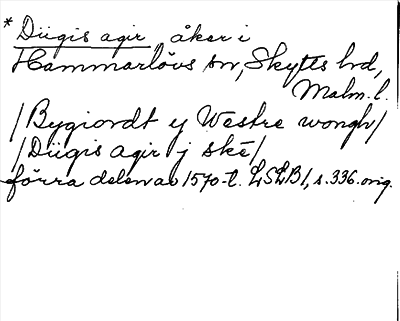 * Diigis agir åker i
Hammarlövs sn, Skytts hd,
Malm. l.
/Bygiordt y Westre wongh/
/Diigis agir j skē/
förra delen av 1570-t. LSLB 1, s. 336. orig.